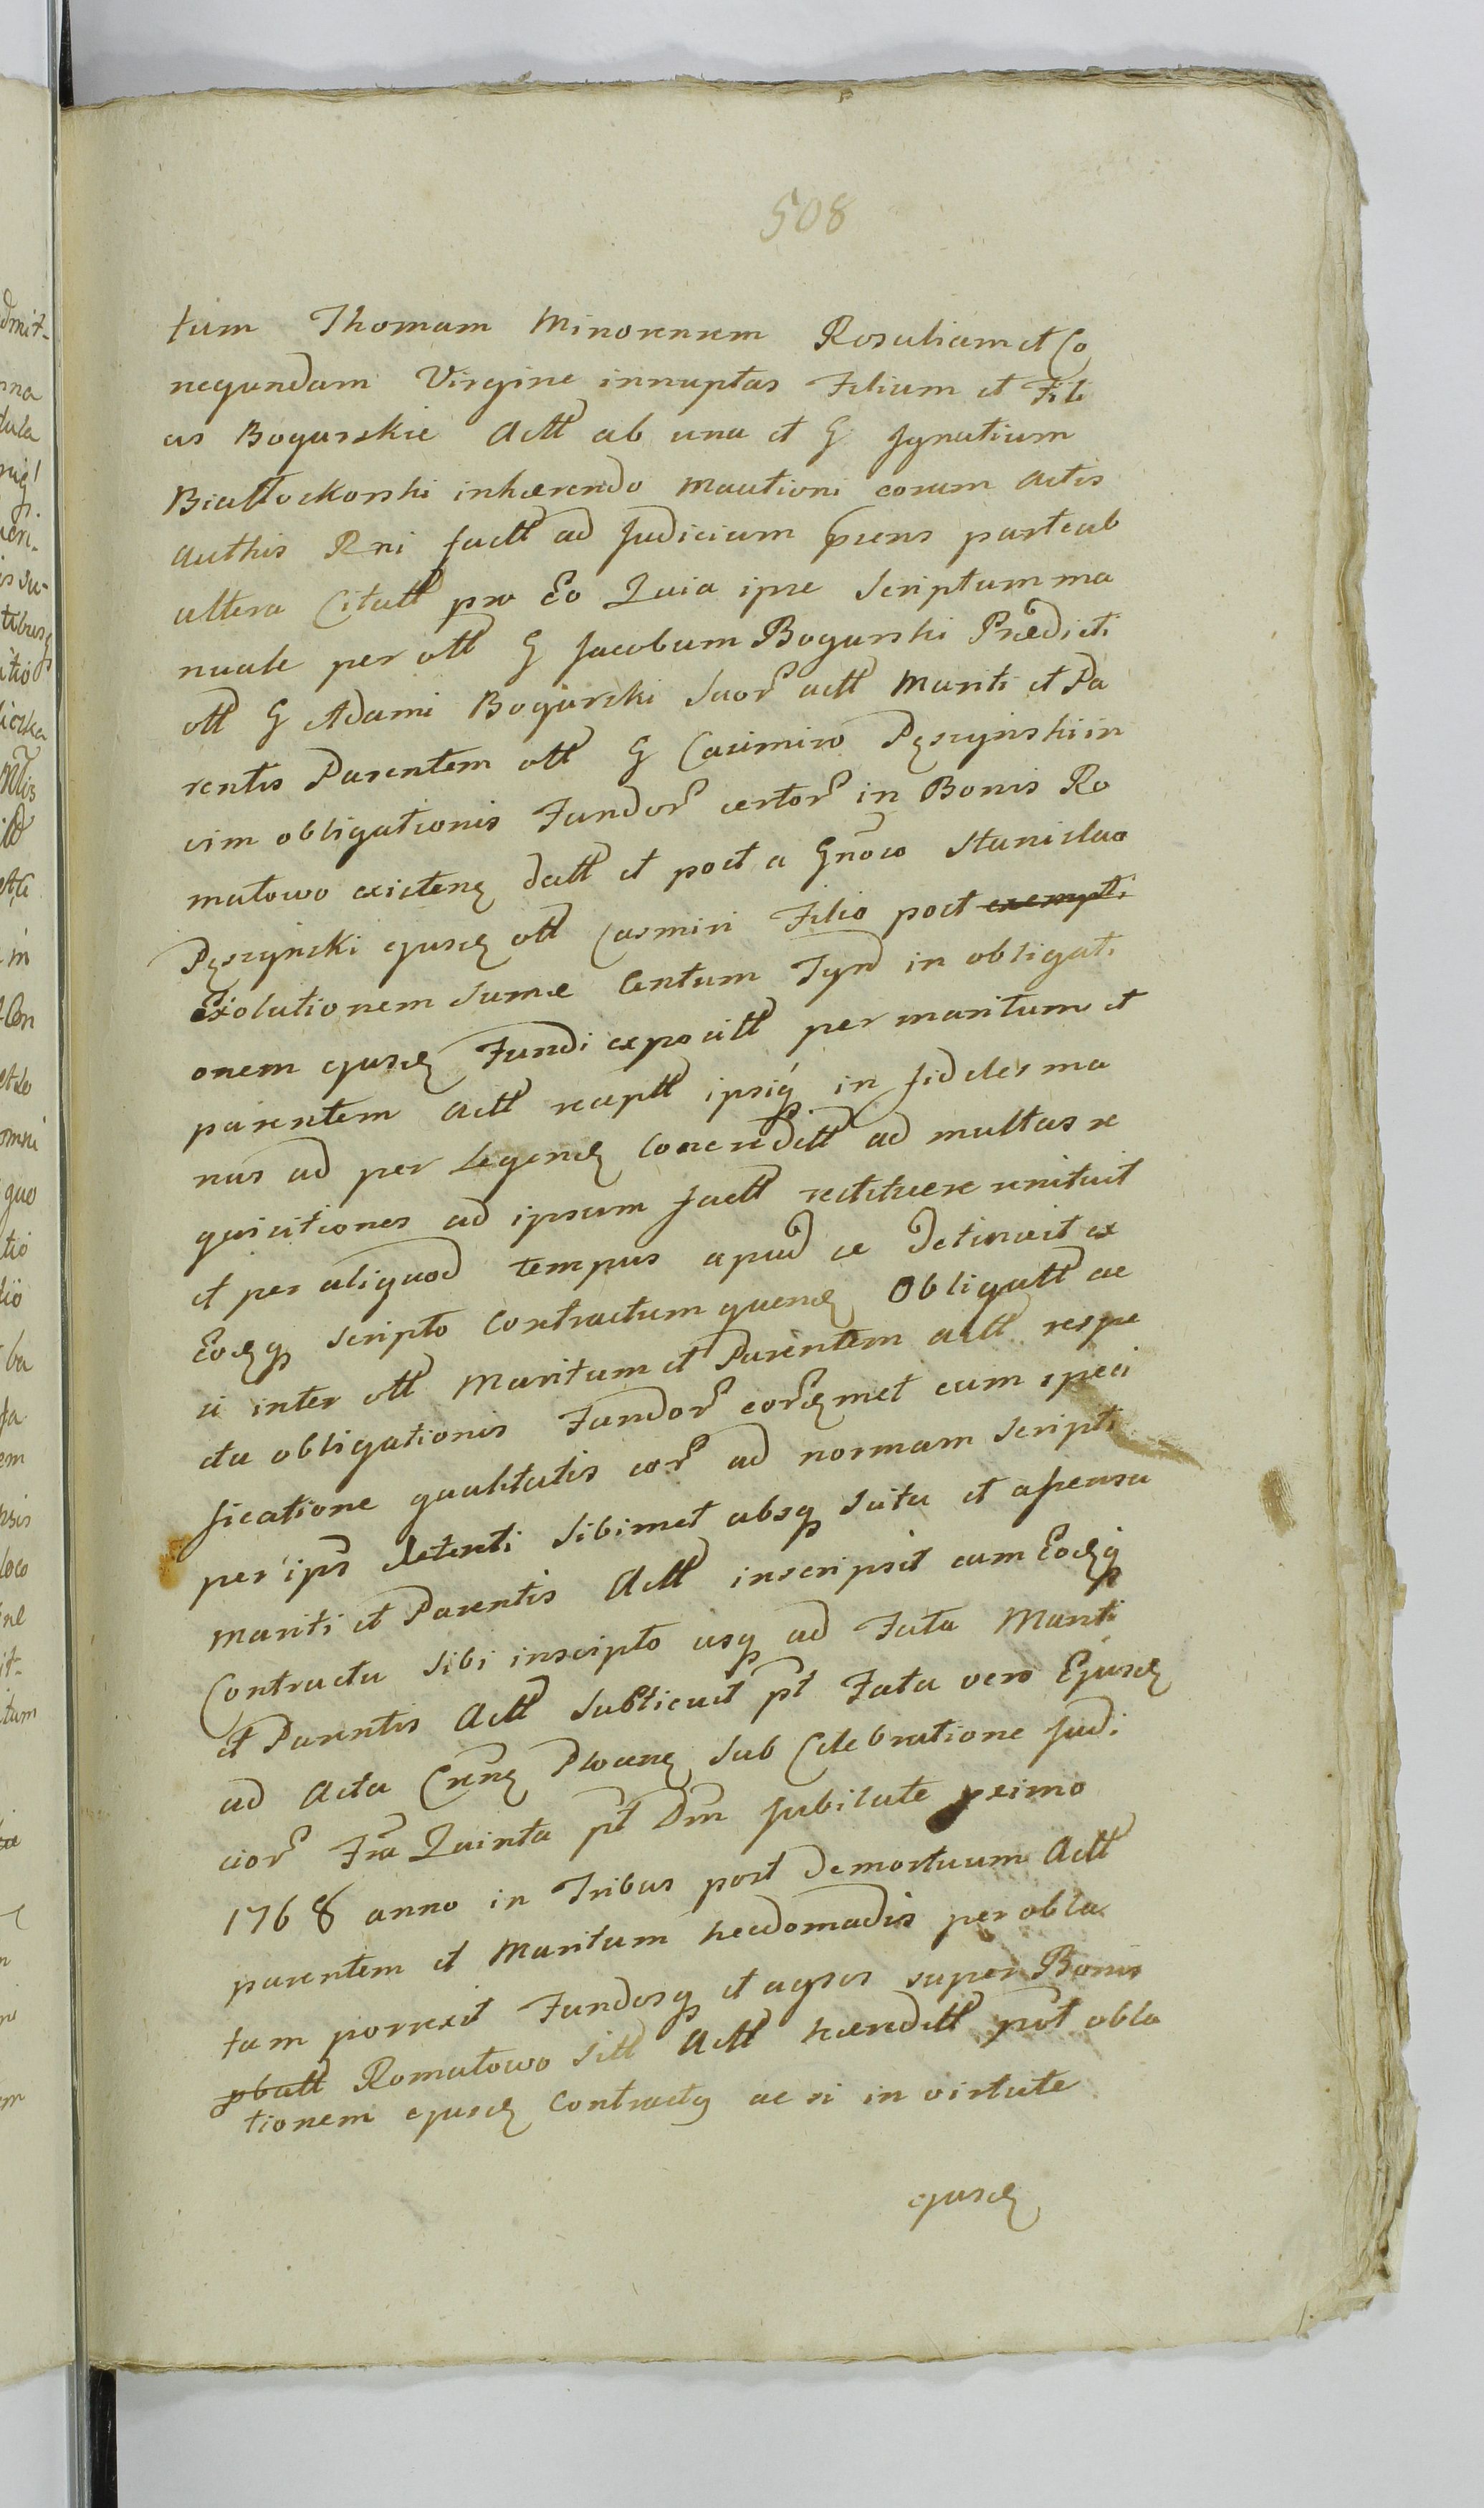 508
tum Thomam Minorenem Rosaliam et Co
negundam Virgine innuptas Filium et Fili
as Bogurskie Actt ab una et G Ignatium
Białłockorski inhærendo Mautioni eorum Actis
Authis Rni factt ad Judicium prens parte ab
altera Citatt pro Eo Quia ipse Scriptum ma
nuale per ott G Jacobum Bogurski Prædicti
ott G Adami Bogurski Suor actt Mariti et Pa
rentis Parentem ott G Casimiro Pęszyński in
vim obligationis Fundor certor in Bonis Ro
matowo existenę datt et post a Gnoso Stanislao
Pęszyński ejusdę ott Casmiri Filio post exempti
Exolutionem Sumæ Centum Tyn in obligati
onem ejusdę Fundi exposítt per maritum et
parentem Actt receptt ipsiq in fideles ma
nus ad per Legendę Concreditt ad multas re
quisitiones ad ipsum factt restituere renituit
et per aliquod tempus apud se detinuit ex
Eodęq Scripto Contractum quendę Obligatt ac
si inter ott Maritum et Parentem actt respe
ctu obligationis Fundor eordęmet cum speci
ficatione qualitatis eor ad normam Scripti
per ips detenti Sibimet absq Scitu et asensu
Mariti et Parentis Actt inscripsit cum Eodęq
Contractu Sibi inscripto usq ad Fata Mariti
et Parentis Actt Subticuit pt Fata vero Ejusdę
ad Acta Crnę Płocenę Sub Celebratione Judi
cior Fria Quinta pt Dm Jubilate primo
1768 anno in Tribus post demortuum Actt
parentem et Maritum hecdomadis per obla
tam porrexit Fundosq et agros super Bonis
pbatt Romatowo Sitt Actt hæreditt prot obla
tionem ejusdę Contractq ac si in virtute
ejusdę